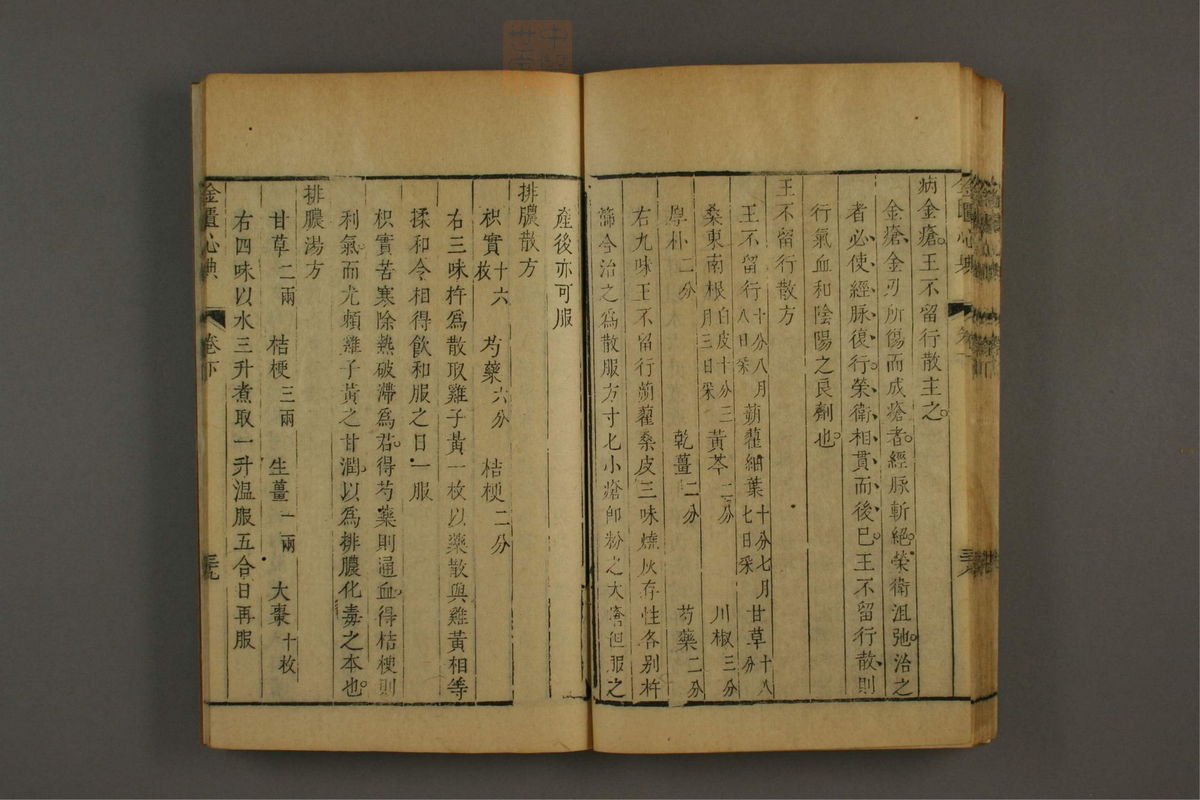 病金瘡王不留行散主之
金瘡金刃所傷而成瘡者經脈斬絕榮衛沮弛治之
者必使經脈復行榮衛相貫而後已王不留行散則
行氣血和陰陽之良劑也
王不留行散方
王不留行十分八月八日采 蒴藋細葉十分七月七日采 甘草十八分
桑東南根白皮十分三月三日采 黃芩二分 川椒三分
厚朴二分 乾薑二分 芍藥二分
右九味王不留行蒴藋桑皮三味燒灰存性各別杵
篩合治之為散服方寸匕小瘡即粉之大瘡但服之
產後亦可服
排膿散方
枳實十六枚 芍藥六分 桔梗二分
右三味杵為散取雞子黃一枚以藥散與雞黃相等
揉和令相得飲和服之日一服
枳實苦寒除熱破滯為君得芍藥則通血得桔梗則
利氣而尤賴雞子黃之甘潤以為排膿化毒之本也
排膿湯方
甘草二兩 桔梗三兩 生薑一兩 大棗十枚
右四味以水三升煮取一升溫服五合日再服
金匱心典 卷下 三九